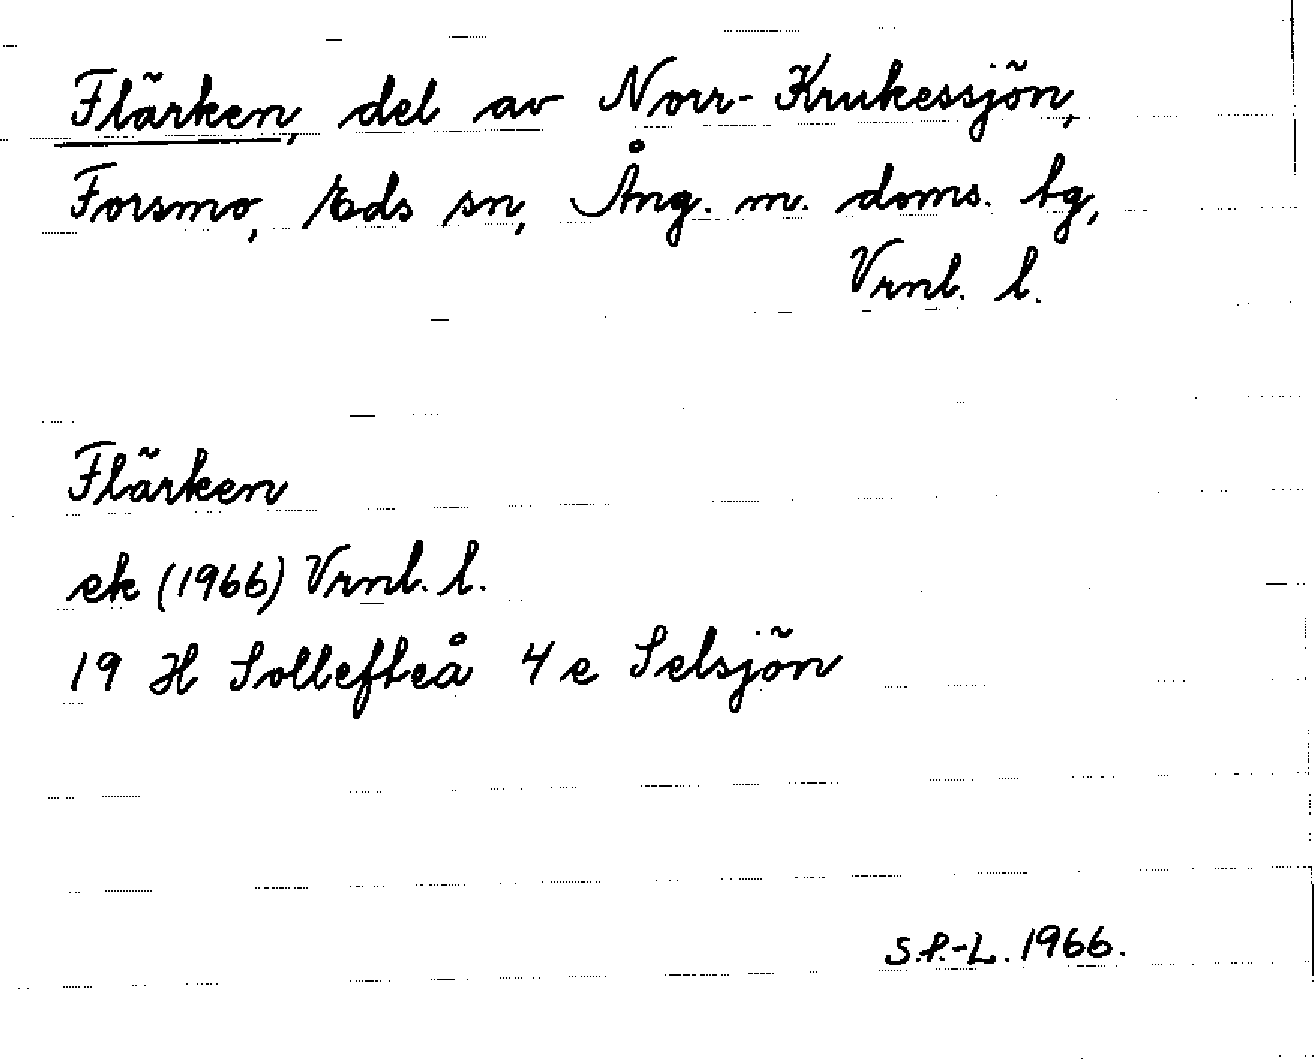 Flärken, del av Norr-Krukessjön,
Forsmo, Eds sn, Ång. m. doms. tg,
Vrnl. l.
Flärken
ek (1966) Vrnl. l.
19 H Sollefteå 4 e Selsjön
S.P.-L. 1966.